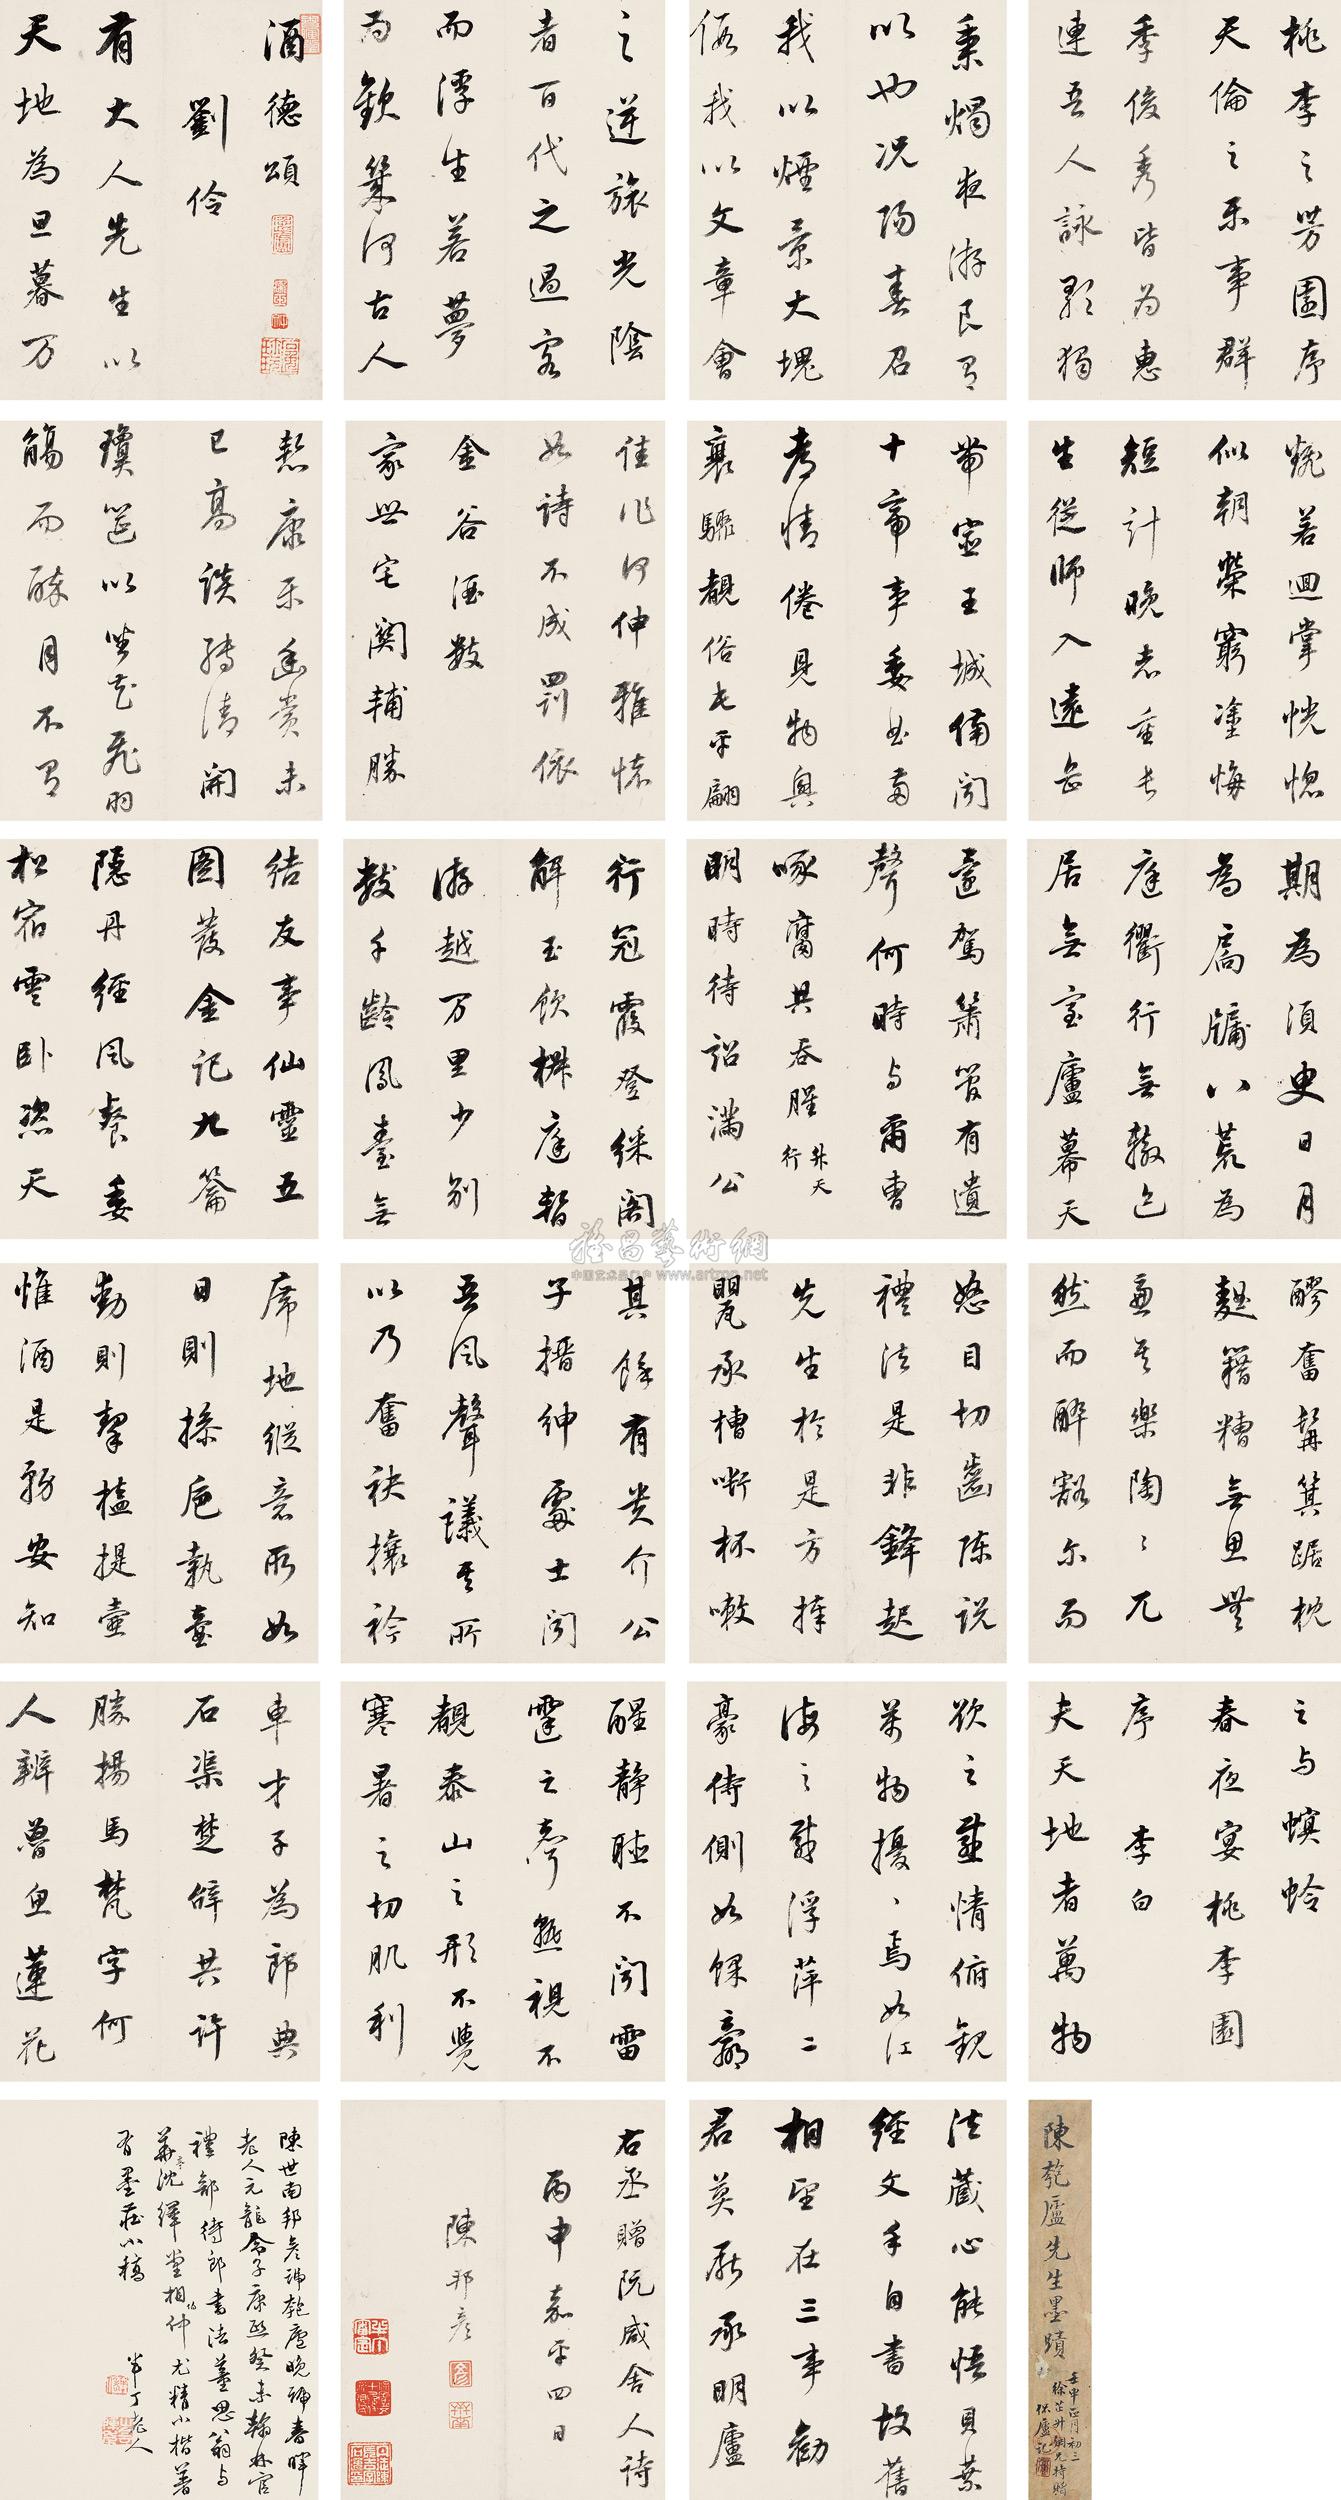 陳匏廬先生墨蹟
壬申正月初三
酒德頌
劉伶
有大人先生以
天地為旦暮万
期為須臾日月
為扃牖八荒為
庭衢行無轍迹
居無室廬幕天
席地縱意所如
日則操卮執壺
動則挈榼提壺
惟酒是務安知
其餘有貴介公
子搢紳處士聞
吾風聲議其所
以乃奮袂攘衿
怒目切齒陳說
禮法是非鋒起
先生於是方捧
甖承槽啣杯嗽
醪奮髯箕踞枕
麴籍糟無思無
慮其樂陶々兀
然而醉豁尔而
醒靜聽不聞雷
霆之聲熟視不
覩泰山之形不覺
寒暑之切肌利
欲之感情俯觀
萬物擾々焉如江
海之載浮萍二
豪侍側如蜾蠃
之与螟蛉
春夜宴桃李園
序 李白
夫天地者萬物
之逆旅光陰
者百代之過客
而浮生若夢
為歡幾何古人
秉燭夜游良有
以也况陽春召
我以煙景大塊
假我以文章會
桃李之芳園序
天倫之樂事群
季俊秀皆為惠
連吾人詠歌獨
慙康樂幽賞未
已高談轉清開
瓊筵以坐花飛羽
觴而醉月不有
佳作何伸雅懷
如詩不成罰依
金谷酒數
家世宅關輔勝
帶宦王城備聞
十帝事委曲兩
都情倦見物興
衰驟覩俗屯平翩
飜若迴掌恍惚
似朝榮窮塗悔
短計晚志重長
生從師入遠岳
結友事仙靈五
圖發金記九籥
隱丹經風餐委
松宿雲卧恣天
行冠霞登綵閣
解玉飲椒庭暫
游越万里少別
數千齡鳳臺無
還駕簫管有遺
聲何時与爾曹
啄腐共吞腥 昇天行
明時待詔滿公
車才子為郎典
石渠楚辞共許
勝揚馬梵字何
人辨魯魚蓮花
法藏心能悟貝葉
經文手自書故舊
相望在三事勸
君莫厭承明廬
右丞贈阮咸舍人詩
丙申嘉平四日
陳邦彥
陳世南邦彥號匏廬晚號春暉
老人元龍令子康熙癸未翰林官
禮部侍郎書法董思翁与
華亭沈繹堂相伯仲尤精小楷著
有墨莊小稿
半丁老人